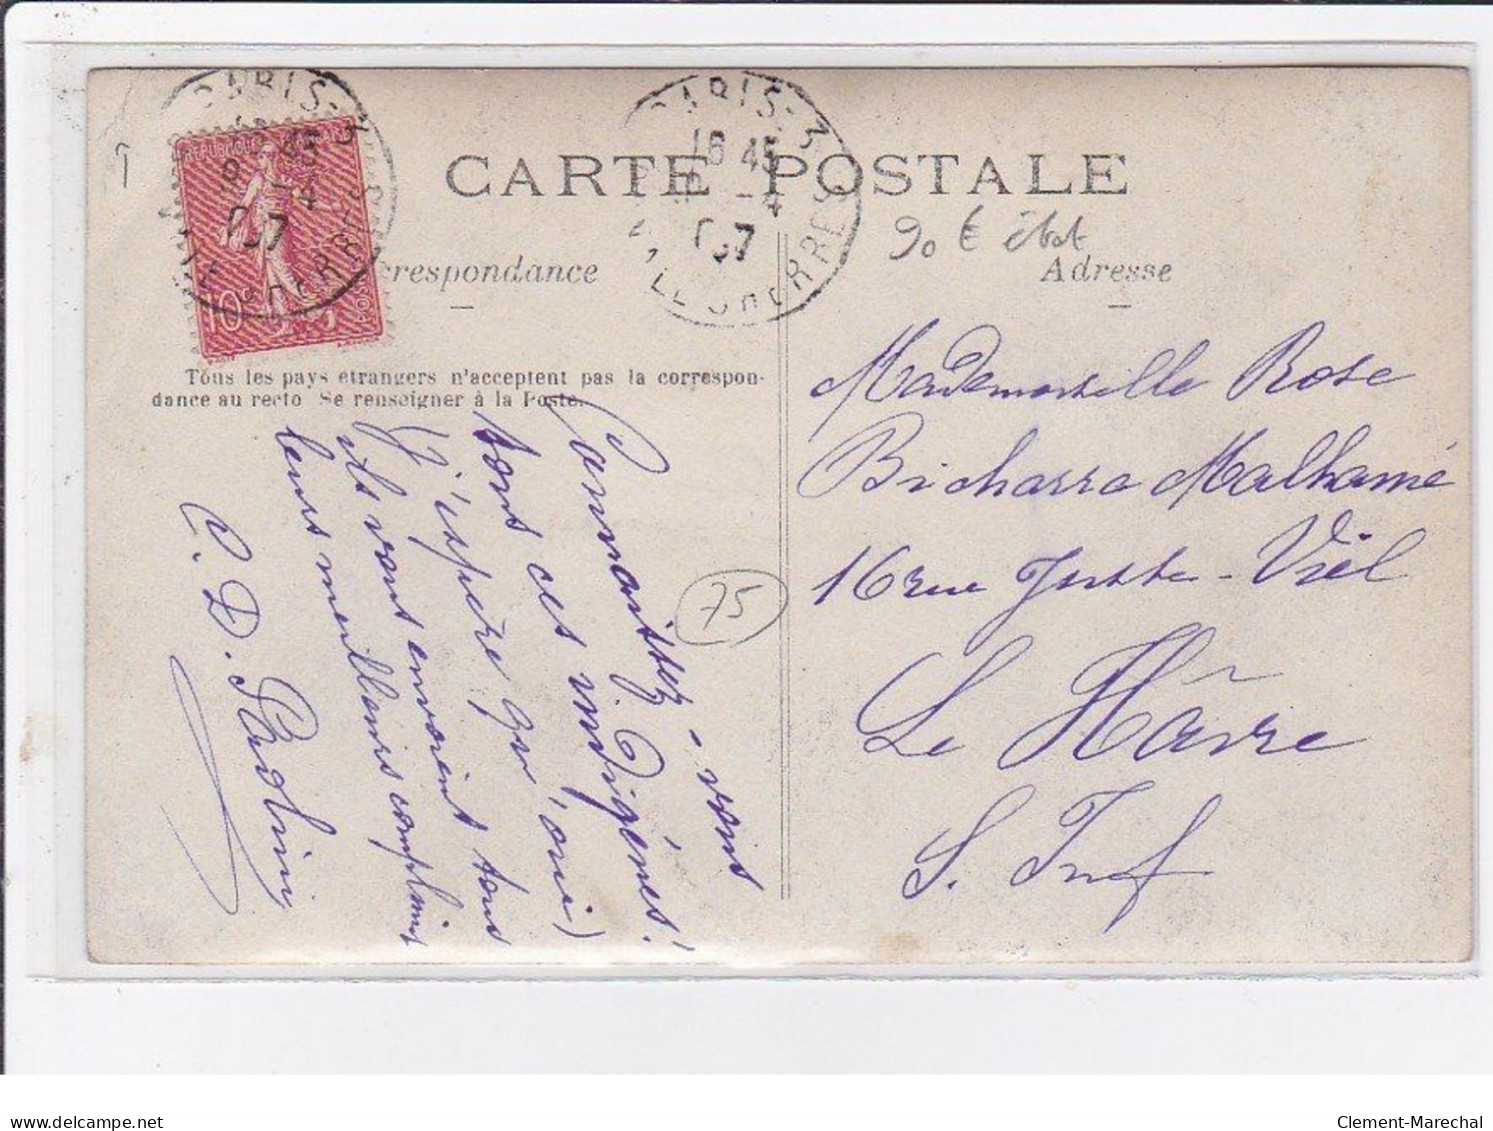 PARIS-3
16 45
-4
07
RUE DES Fes St
PARIS-3
16 45
-4
07
REPUBLIQUE
10c
CARTE POSTALE
90 € état
respondance
Adresse
Tous les pays étrangers n'acceptent pas la correspon-
dance au recto Se renseigner à la Poste.
Connaissez-vous
tous ces indigènes!
(J'espère qu'oui)
ils vous envoient tous
leurs meilleurs compliments
75
Mademoiselle Rose
Bicharra Malhamé
16 rue Juste-Viel
Le Hâvre
S. Inf
Clement-Marechal
delcampe.net